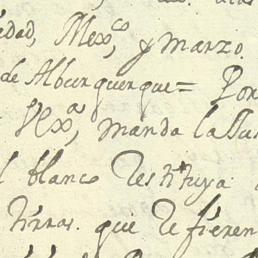 edad, Mex,co y marzo.
de Alburquerque = Por
Vexa, manda la Jus
l blanco restituya
tierras. que refieren